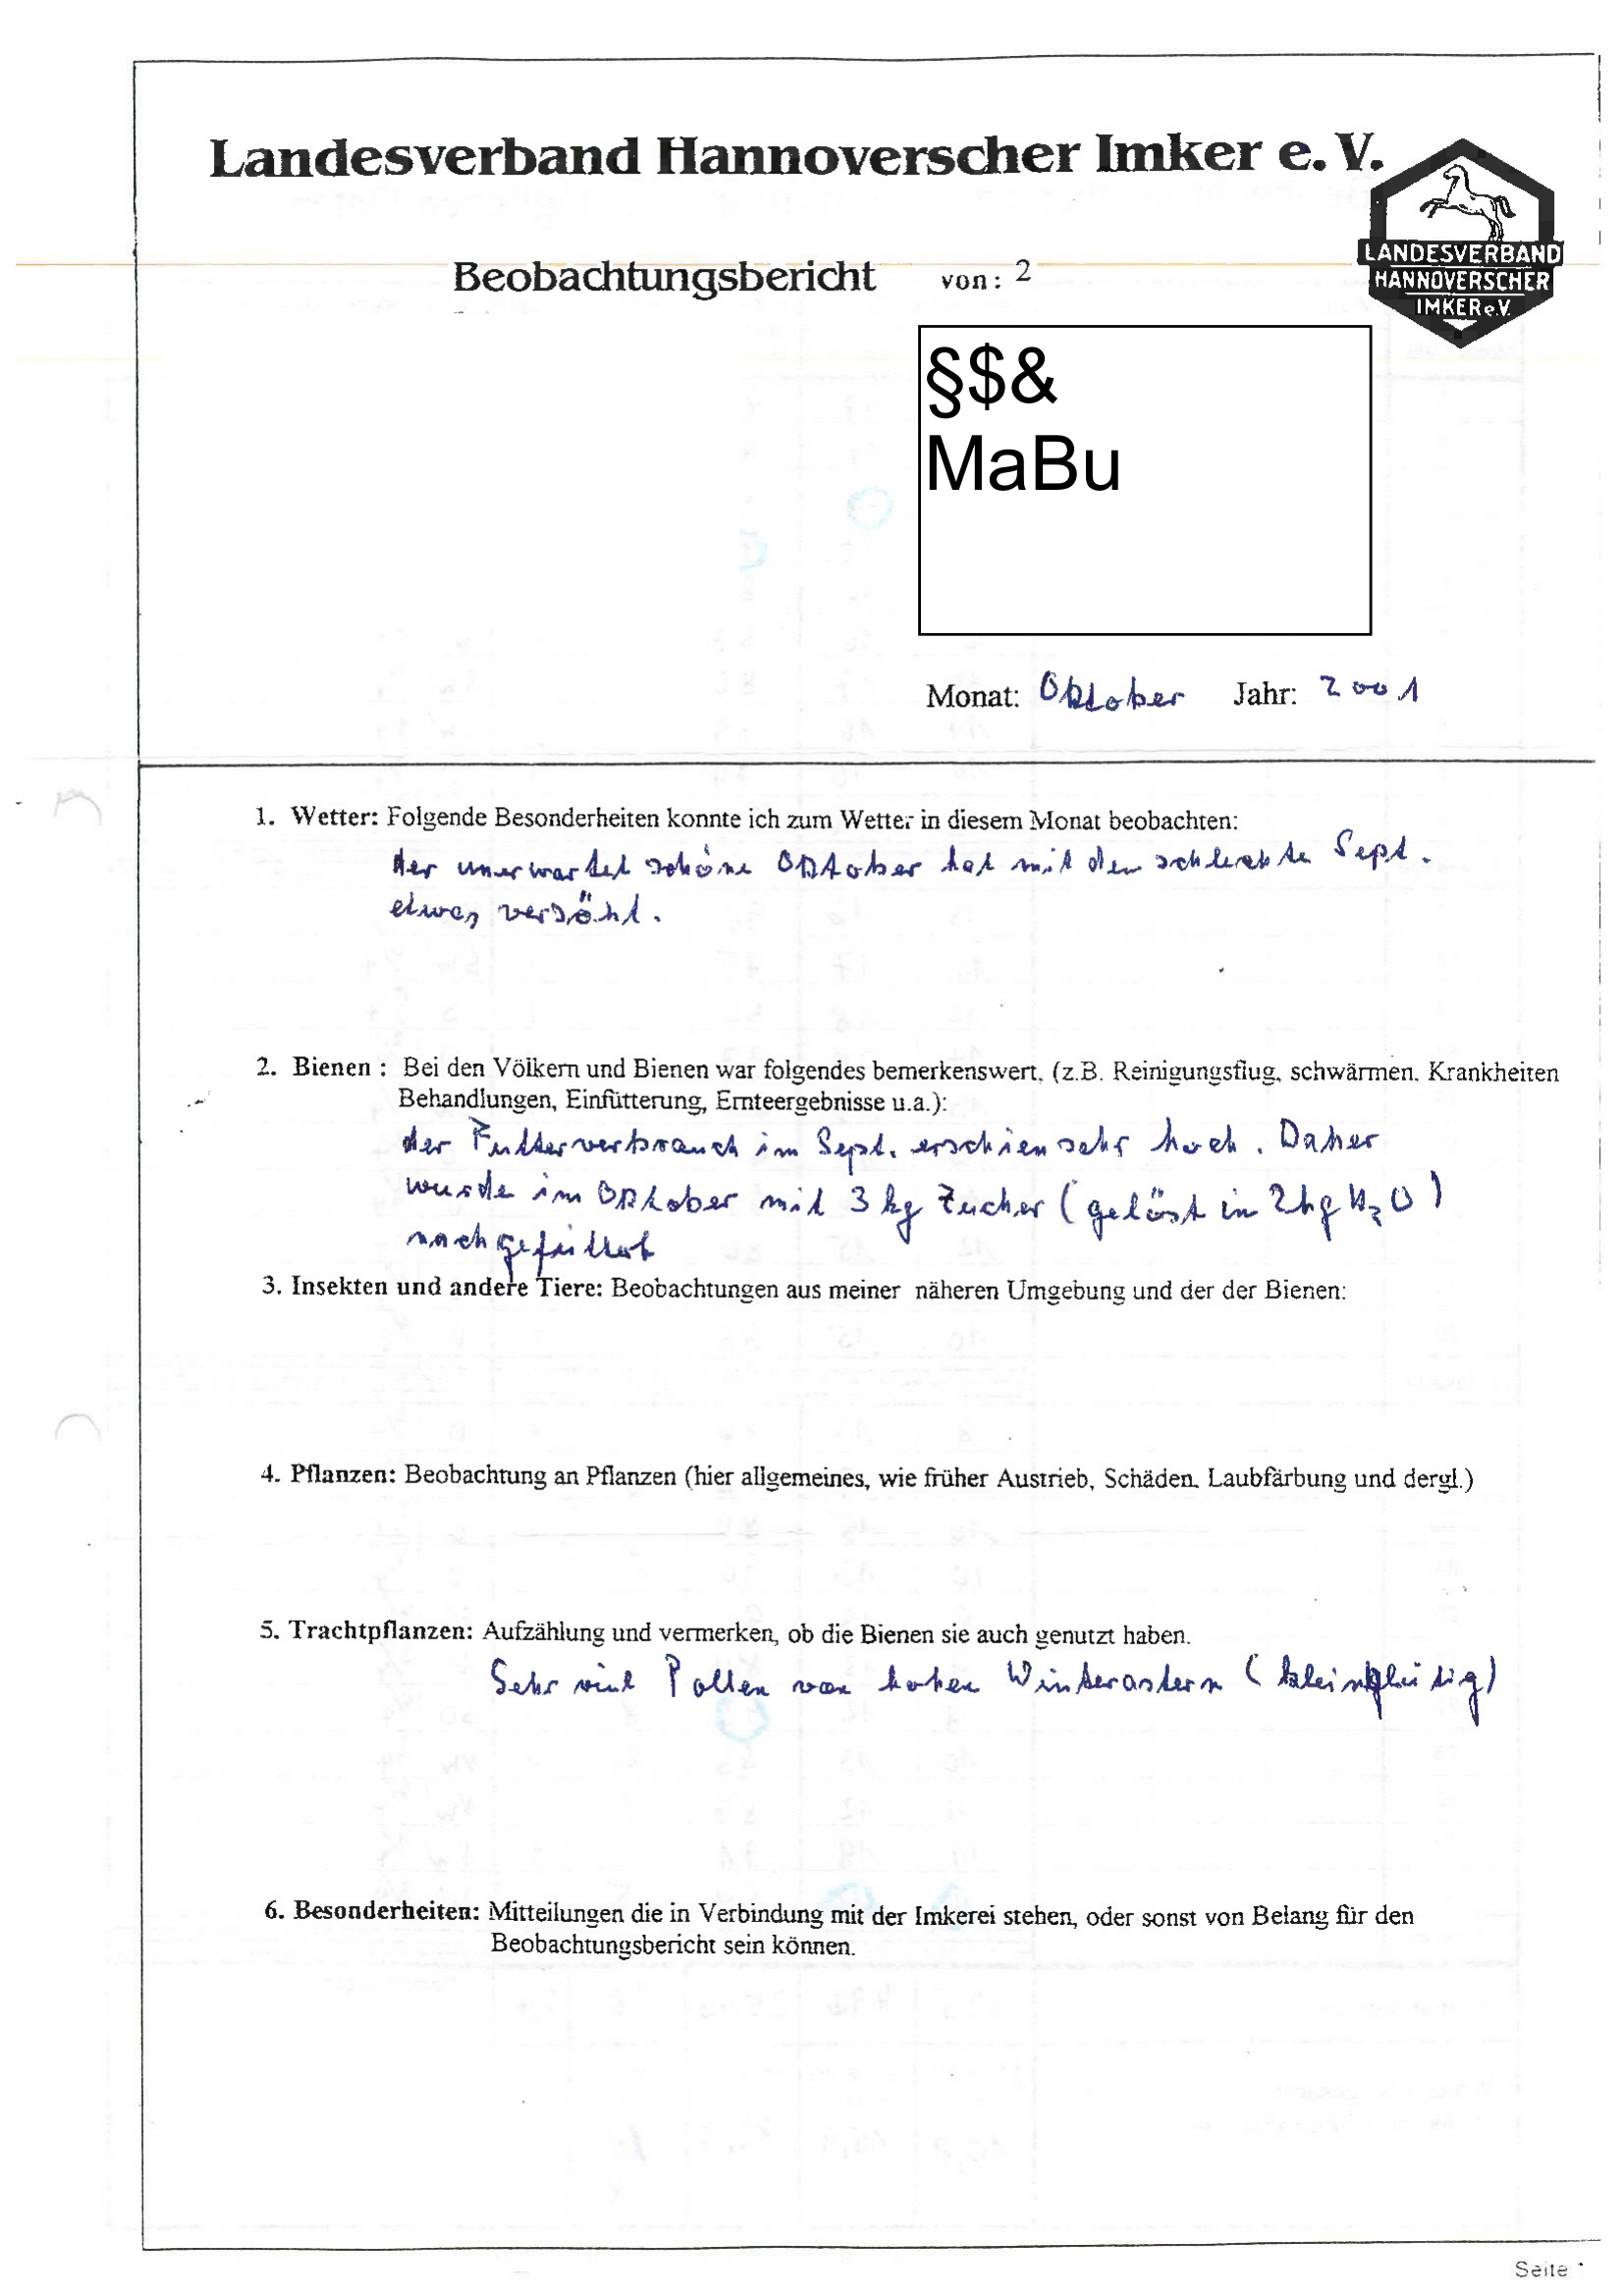 Landesverband Hannoverscher Imker e. V.
LANDESVERBAND
HANNOVERSCHER
IMKER e.V.
Beobachtungsbericht von: 2
§$&
MaBu
Monat: Oktober Jahr: 2001
1. Wetter: Folgende Besonderheiten konnte ich zum Wetter in diesem Monat beobachten:
der unerwartet schöne Oktober hat mit dem schlechte Sept.
etwas versöhnt.
2. Bienen : Bei den Völkern und Bienen war folgendes bemerkenswert. (z.B. Reinigungsflug, schwärmen. Krankheiten
Behandlungen, Einfütterung, Ernteergebnisse u.a.):
der Futterverbrauch im Sept. erschien sehr hoch. Daher
wurde im Oktober mit 3 kg Zucker (gelöst in 2 kg H₂O)
nachgefüttert
3. Insekten und andere Tiere: Beobachtungen aus meiner näheren Umgebung und der der Bienen:
4. Pflanzen: Beobachtung an Pflanzen (hier allgemeines, wie früher Austrieb, Schäden. Laubfärbung und dergl.)
5. Trachtpflanzen: Aufzählung und vermerken, ob die Bienen sie auch genutzt haben.
Sehr viel Pollen von hohen Winterastern (kleinblütig)
6. Besonderheiten: Mitteilungen die in Verbindung mit der Imkerei stehen, oder sonst von Belang für den
Beobachtungsbericht sein können.
Seite